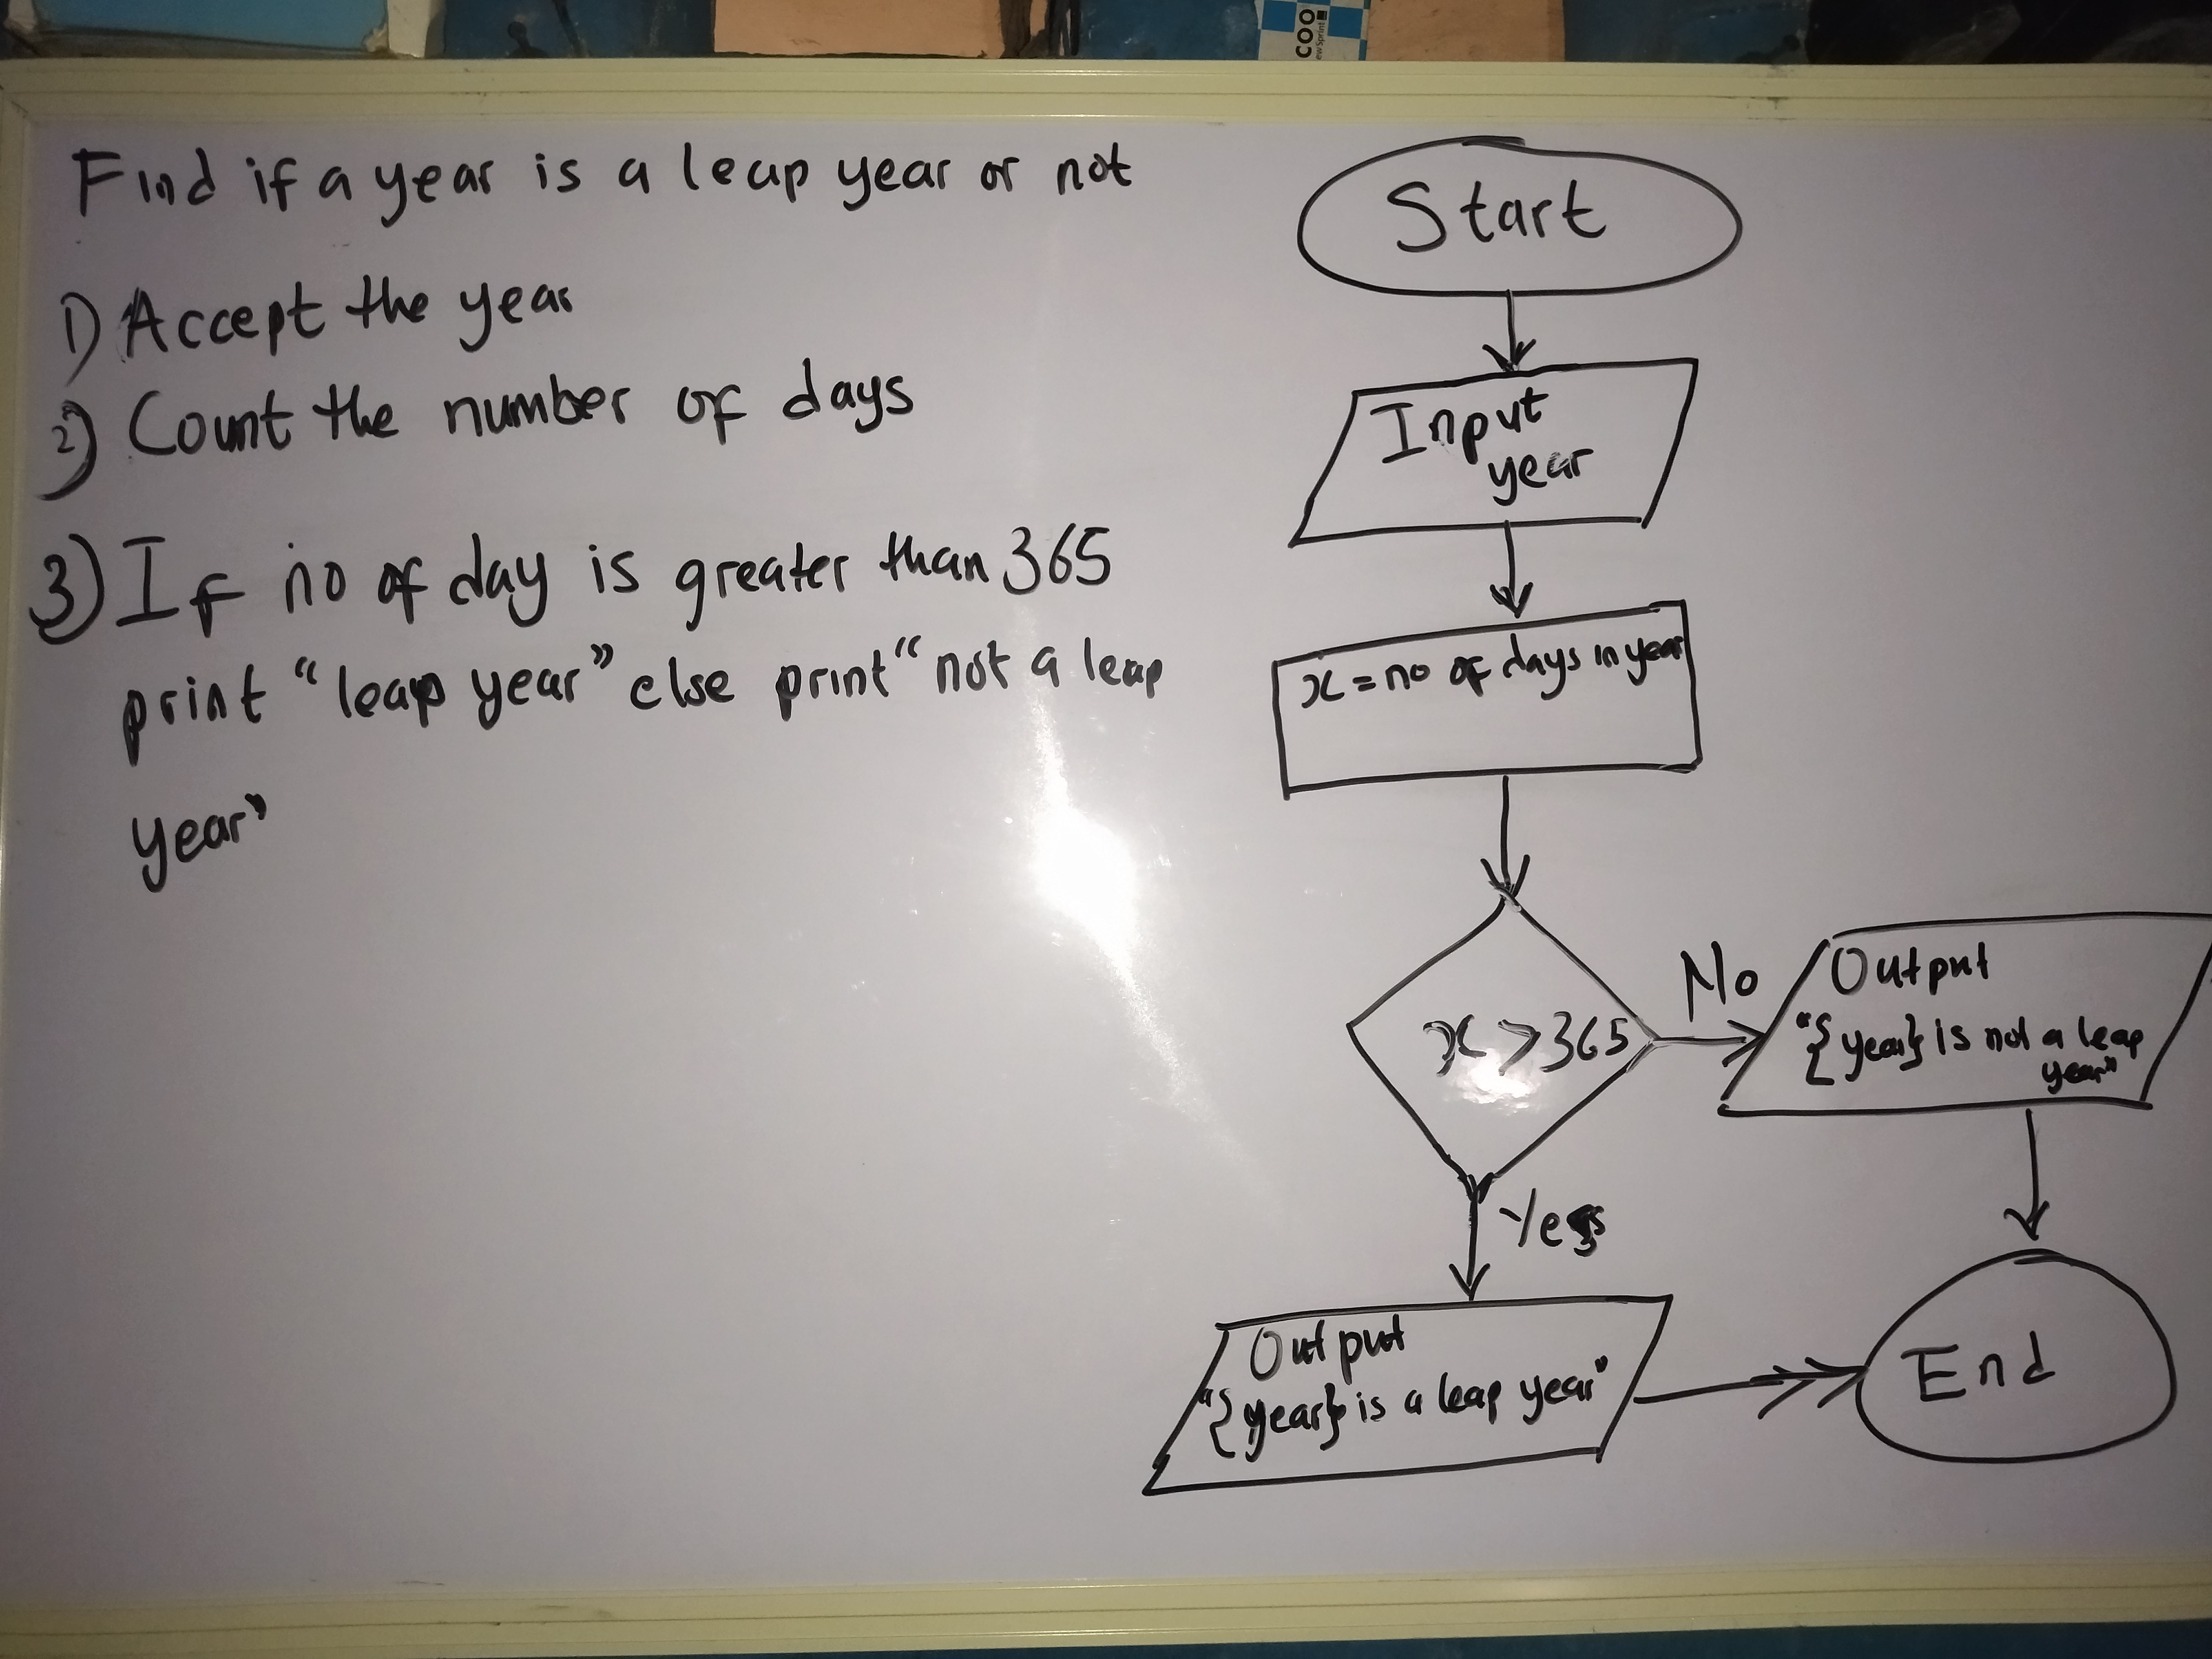 COO
ew Sprint
Find if a year is a leap year or not
1) Accept the year
2) Count the number of days
3) If no of day is greater than 365
print "leap year" else print "not a leap
year"
Start
Input
year
x = no of days in year
x > 365
No
Output
"{year} is not a leap
year"
Yes
Output
"{year} is a leap year"
End